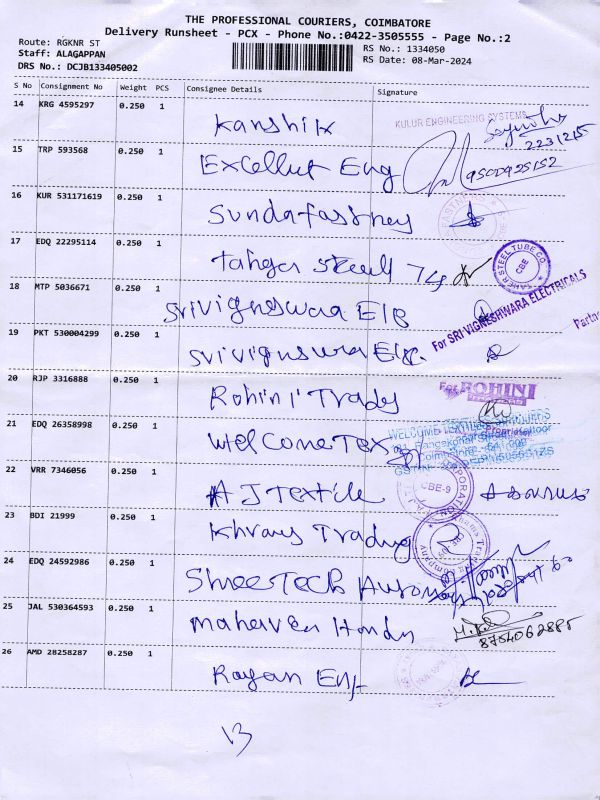 THE PROFESSIONAL COURIERS, COIMBATORE
Delivery Runsheet - PCX - Phone No.:0422-3505555 - Page No.:2
Route: RGKNR ST
RS No.: 1334050
Staff: ALAGAPPAN
RS Date: 08-Mar-2024
DRS No.: DCJB133405002
S No Consignment No Weight PCS Consignee Details Signature
14 KRG 4595297 0.250 1
Kanshik
KULUR ENGINEERING SYSTEMS
2231215
15 TRP 593568 0.250 1
Excellut Eng
9500925152
16 KUR 531171619 0.250 1
Sundafastney
17 EDQ 22295114 0.250 1
Taher Steell
TAHER STEEL TUBE CO.
CBE
18 MTP 5036671 0.250 1
Srivigneswara Ele
For SRI VIGNESHWARA ELECTRICALS
Partne
19 PKT 530004299 0.250 1
Srivignswara Ele.
20 RJP 3316888 0.250 1
Rohini Trady
For ROHINI
21 EDQ 26358998 0.250 1
Welcome Tex
Proprietor
22 VRR 7346056 0.250 1
A J Textile
CBE-9
23 BDI 21999 0.250 1
Trading
24 EDQ 24592986 0.250 1
Shree Tech Automa
25 JAL 530364593 0.250 1
Mahaveer Hondn
8754062885
26 AMD 28258287 0.250 1
Rayan Eng
13